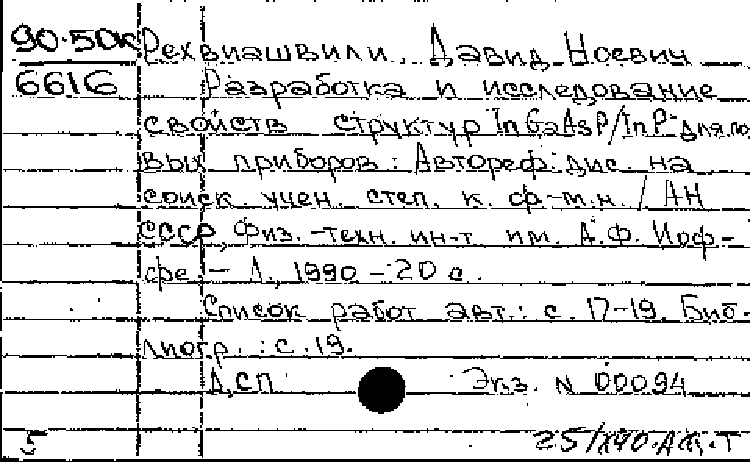 90-50к Рехвиашвили Давид Ноевич
6616 Разработка и исследование
свойств структур InGaAsP/InP для по
вых приборов: Автореф. дис. на
соиск. учен. степ. к. ф.-м.н. / АН
СССР, Физ.-техн. ин-т им. А.Ф. Иоф-
фе. - Л., 1990 - 20 с.
Список работ авт.: с. 17-19. Биб-
лиогр.: с. 19.
ДСП Экз. N 00094
5